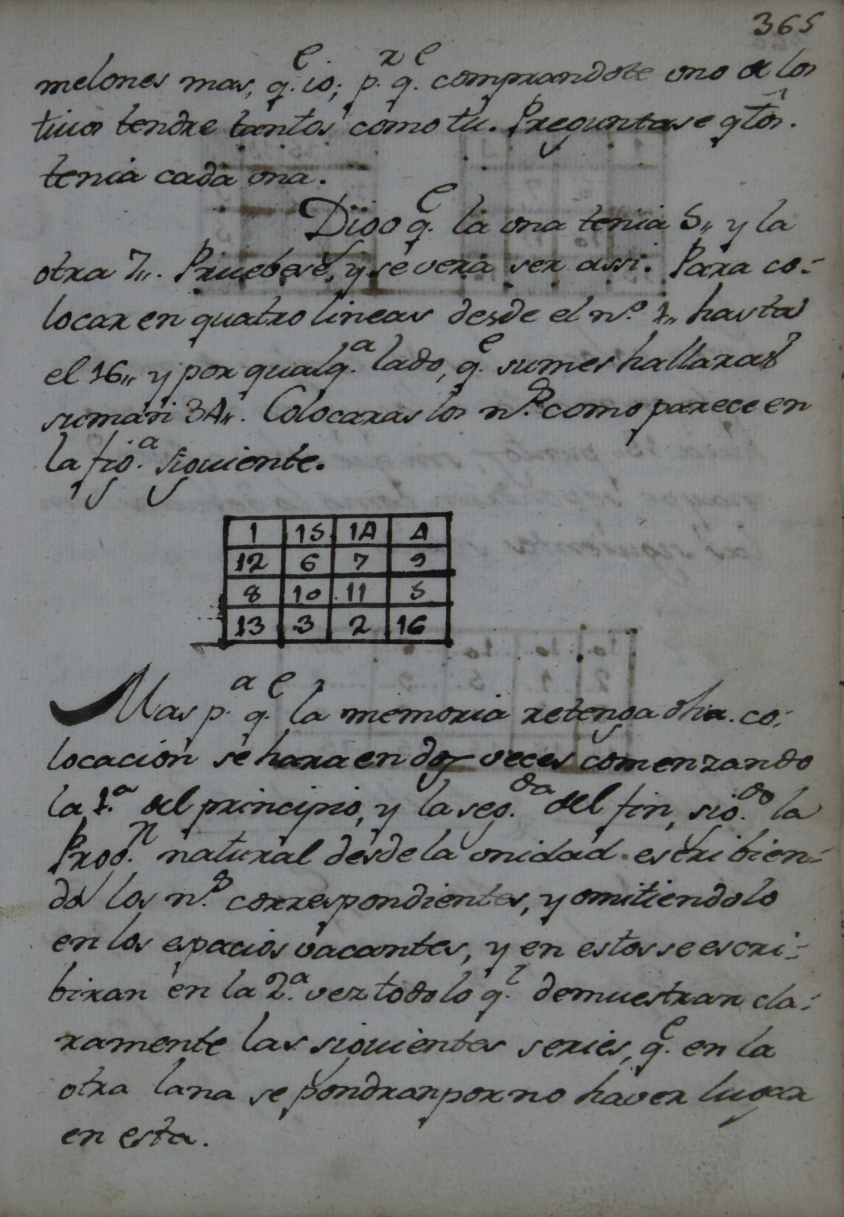 365
melones mas, q.e io; p.r q.e comprandote uno de los
tuios tendre tantos como tu. Preguntase qtos.
tenia cada una.
Digo q.e la una tenia 5,, y la
otra 7,,. Pruebese, y se verá ser assi. Para co-
locar en quatro lineas desde el n.o 1,, hasta
el 16,, y por qualq.a lado, q.e sumes hallaras
suman 34,,. Colocaras los n.s como parece en
la fig.a siguiente.
1 15 14 4
12 6 7 9
8 10 11 5
13 3 2 16
Mas p.a q.e la memoria retenga dha. co-
locacion se hara en dos veces comenzando
la 1.a del principio, y la seg.da del fin, sig.do la
Prog.n natural desde la unidad escribien-
do los n.s correspondientes, y omitiendolo
en los espacios vacantes, y en estos se escri-
biran en la 2.a vez todo lo q.e demuestran cla-
ramente las siguientes series, q.e en la
otra lana se pondran por no haver lugar
en esta.